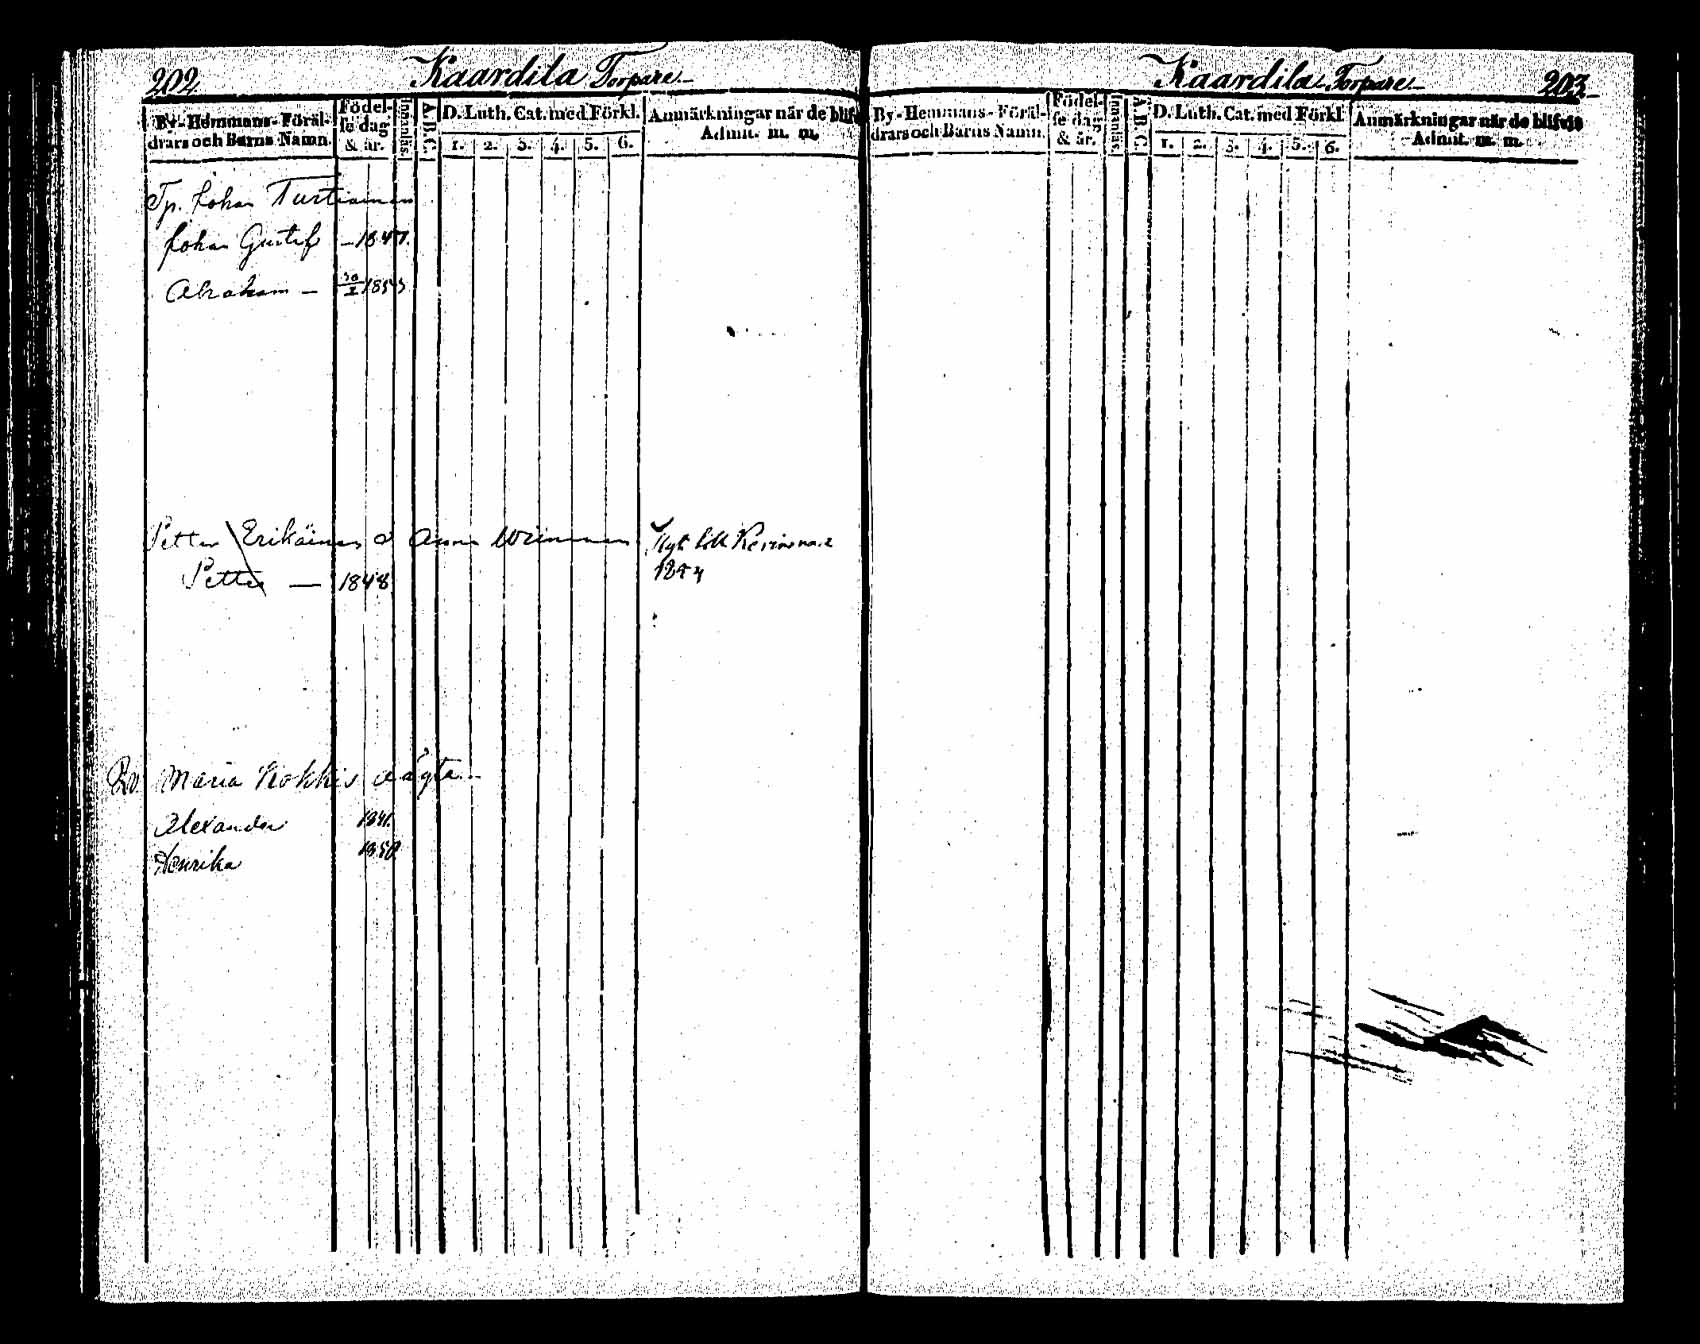 202
Kaardila Torpare
By- Hemmans- Föräl-
drars och Barns Namn.
Födel-
se dag
& år.
Innanläs.
A.B.C.
D. Luth. Cat. med Förkl.
1. 2. 3. 4. 5. 6.
Anmärkningar när de blifv
Admit. m. m.
Tp. Johan Turtiainen
Johan Gustaf – 1847.
Abraham – 30/I 1853
Petter Erikäinen & Anna
Petter — 1848
Flytt till
Maria Kokkis oägta
Alexander 1841.
Henrika
Kaardila Torpare
203
By- Hemmans- Föräl-
drars och Barns Namn.
Födel-
se dag
& år.
Innanläs.
A.B.C.
D. Luth. Cat. med Förkl
1. 2. 3. 4. 5. 6.
Anmärkningar när de blifvit
Admit. m. m.